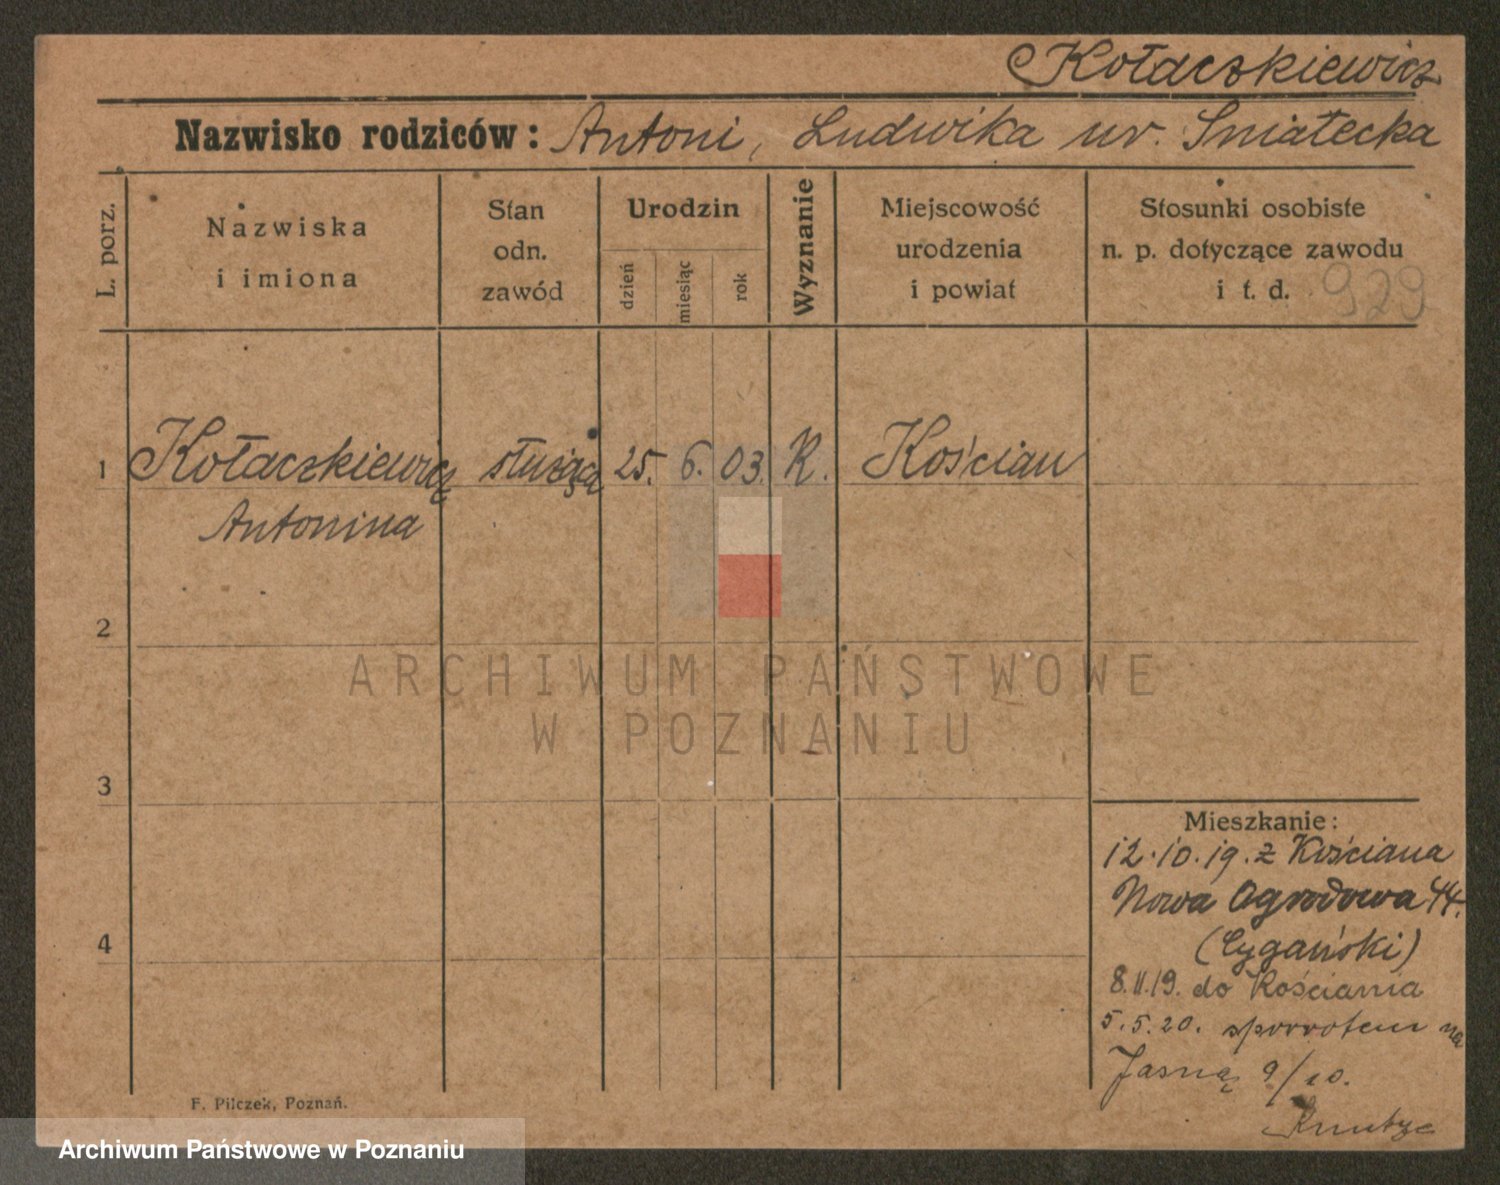 Kołaczkiewicz
Nazwisko rodziców: Antoni, Ludwika ur. Śniatecka
L. porz.
Nazwiska
i imiona
Stan
odn.
zawód
Urodzin
dzień
miesiąc
rok
Wyznanie
Miejscowość
urodzenia
i powiat
Stosunki osobiste
n. p. dotyczące zawodu
i t. d.
929
1 Kołaczkiewicz służąca 25. 6. 03. K. Kościan
Antonina
2
ARCHIWUM PAŃSTWOWE
W POZNANIU
3
Mieszkanie:
12.10.19. z Kościana
Nowa Ogrodowa 44.
(Cygański)
4
8.11.19. do Kościania
5.5.20. spowrotem na
Jasną 9/10.
F. Pilczek, Poznań.
Archiwum Państwowe w Poznaniu